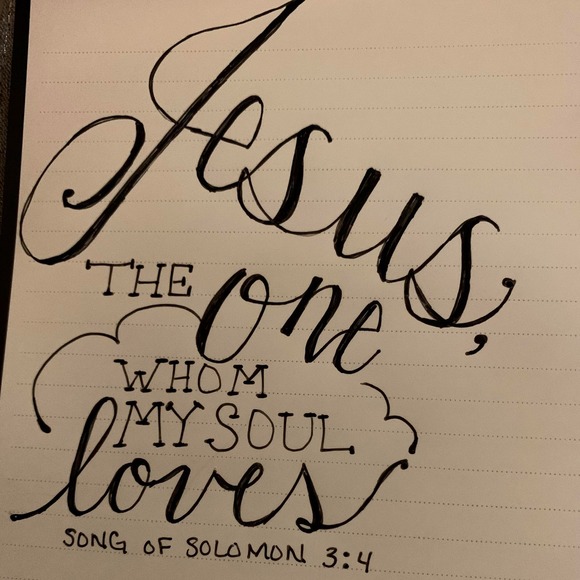 Jesus,
THE one
WHOM
MY SOUL
loves
SONG OF SOLOMON 3:4